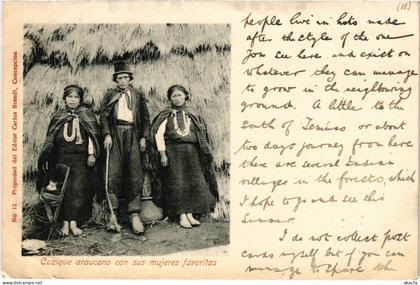 (11)
people live in huts made
after the style of the one
you see here, and exist on
whatever they can manage
to grow in the neighbouring
ground. A little to the
South of Temuco or about
two days journey from here
there are several Indian
villages in the forests, which
I hope to go and see this
Summer.
I do not collect post
cards myself but if you can
manage to spare the
No. 12. Propiedad del Editor Carlos Brandt, Concepcion
Cazique araucano con sus mujeres favoritas